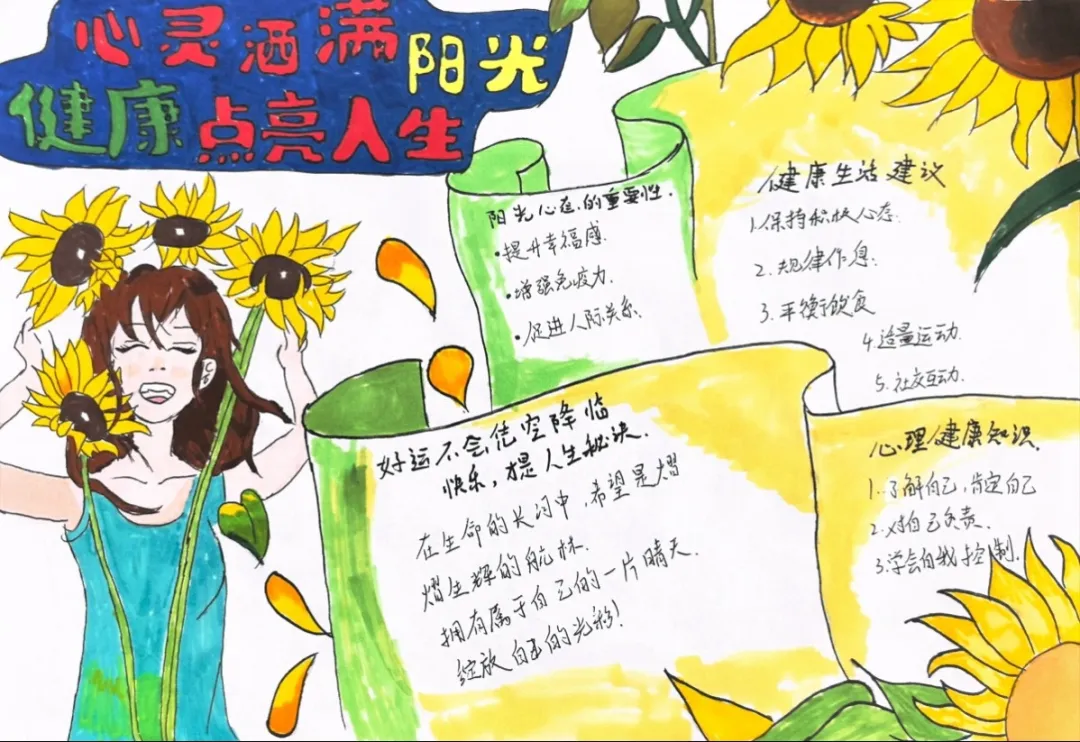 心灵洒满阳光
健康点亮人生
阳光心态的重要性.
•提升幸福感.
•增强免疫力.
•促进人际关系.
健康生活建议
1.保持积极心态.
2.规律作息.
3.平衡饮食
4.适量运动.
5.社交互动.
好运不会凭空降临
快乐,才是人生秘诀.
在生命的长河中,希望是熠
熠生辉的航标.
拥有属于自己的一片晴天.
绽放自己的光彩!
心理健康知识.
1.了解自己,肯定自己
2.对自己负责.
3.学会自我控制.